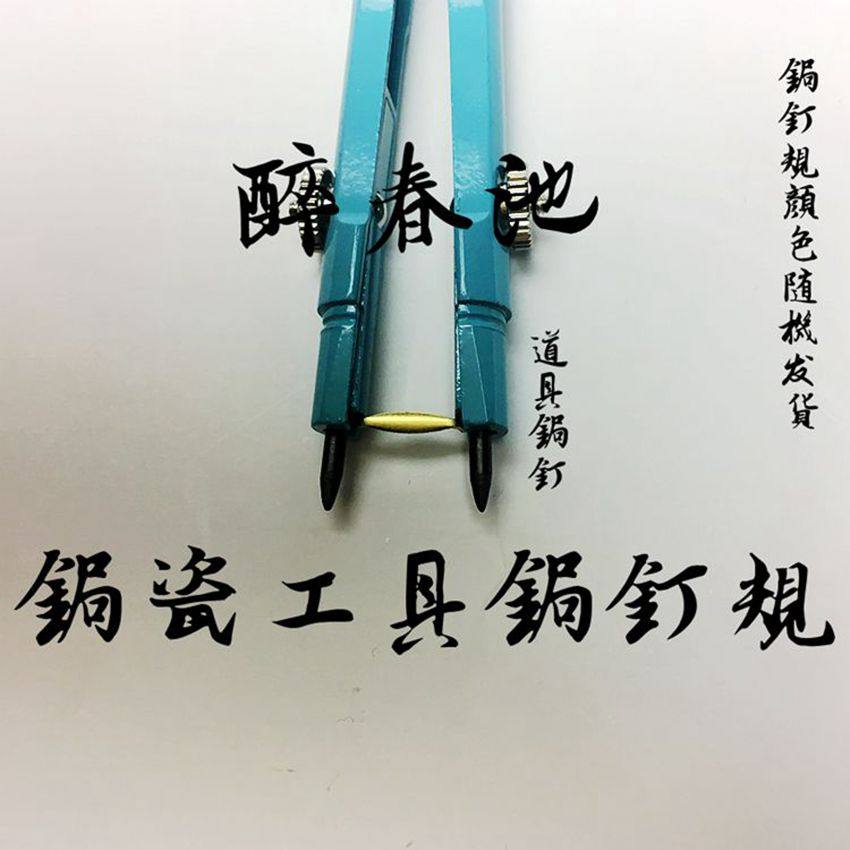 醉春池
鋦釘規顏色随機发貨
道具鋦釘
鋦瓷工具鋦釘規